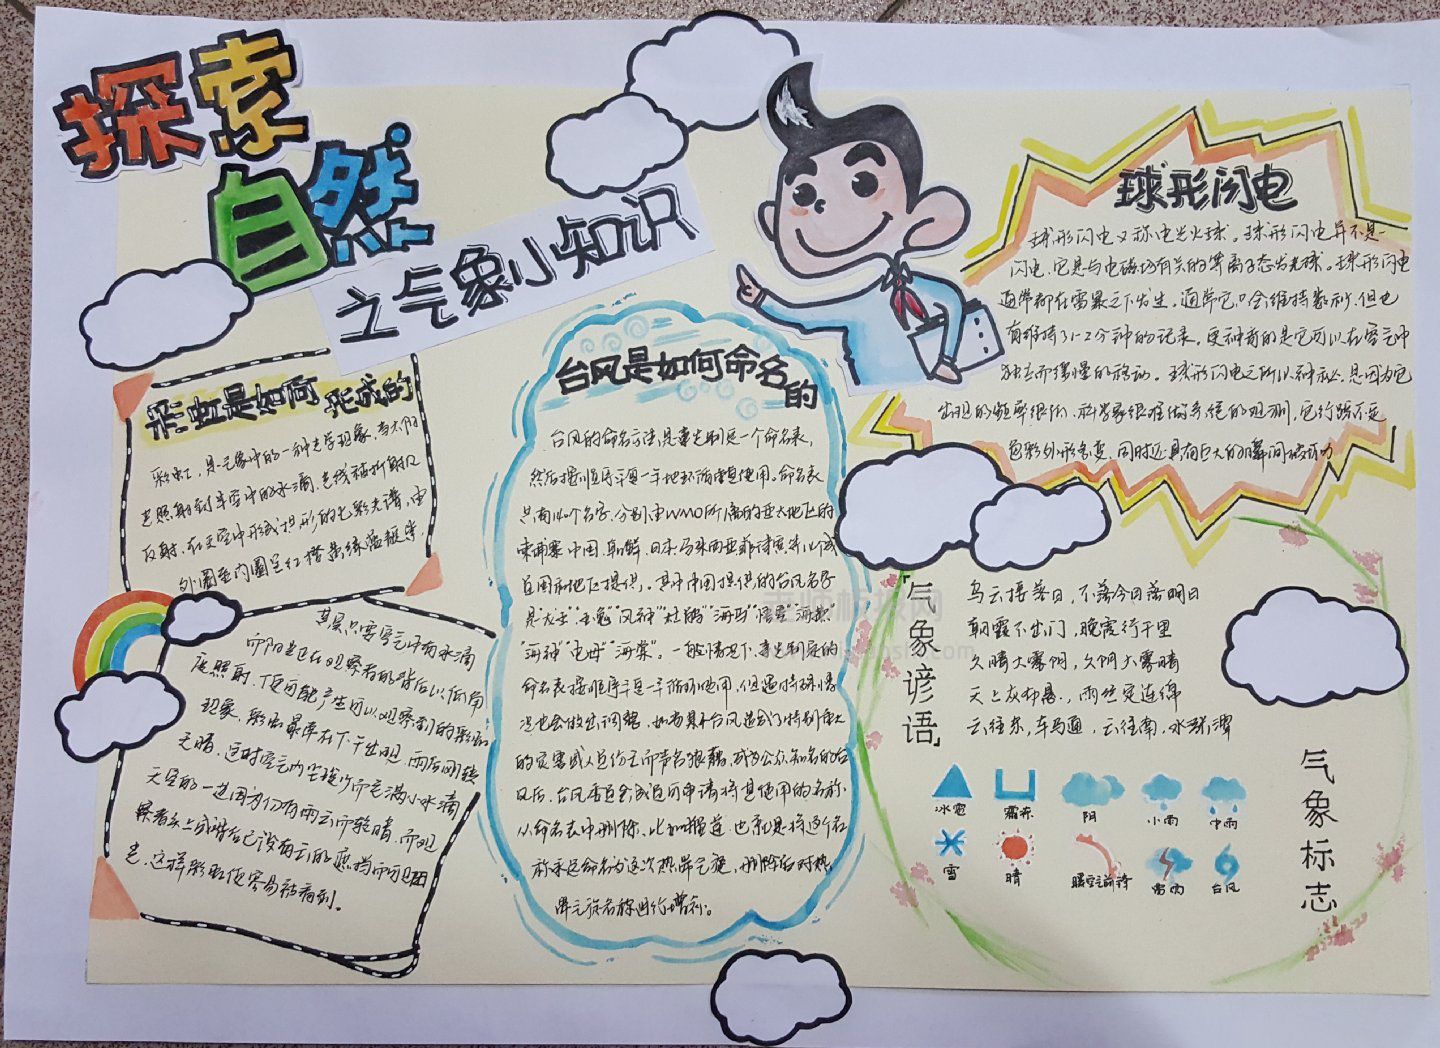 探索
自然
之气象小知识
彩虹是如何形成的
彩虹，是气象中的一种光学现象，当太阳
光照射到半空中的水滴，光线被折射及
反射，在天空中形成拱形的七彩光谱，由
外圈至内圈呈红橙黄绿蓝靛紫，
其实只要空气中有水滴
而阳光正在观察者的背后以低角
度照射，便可能产生可以观察到的彩虹
现象，彩虹最常在下午出现，雨后刚转
天晴，这时空气内尘埃少而充满小水滴
天空的一边因为仍有雨云而较暗，而观
察者头上或背后已没有云的遮挡而可见阳
光，这样彩虹便容易被看到。
台风是如何命名的
台风的命名方法是事先制定一个命名表，
然后按顺序年复一年地环循重复使用。命名表
共有140个名字，分别由WMO所属的亚太地区的
柬埔寨 中国、朝鲜、日本、马来西亚菲律宾等14个成
员国和地区提供。其中中国提供的台风名字
是"龙王""玉兔""风神""杜鹃""海马""悟空""海燕"
"海神""电母""海棠"。一般情况下，事先制定的
命名表按顺序年复一年循环使用，但遇特殊情
况也会做出调整，如当某个台风造成了特别重大
的灾害或人员伤亡而声名狼藉，成为公众知名的台
风后，台风委员会成员可申请将其使用的名称
从命名表中删除，也就是将这个名
称永远命名为这次热带气旋，删除后对热
带气旋名称进行增补。
球形闪电
球形闪电又称电光火球。球形闪电并不是一
闪电，它是与电磁场有关的等离子态发光球。球形闪电
通常都在雷暴之下发生。通常它只会维持数秒，但也
有维持了1-2分钟的记录。更神奇的是它可以在空气中
独立而缓慢的移动。球形闪电之所以神秘，是因为它
出现的频率很低，科学家很难做系统的观测，它行踪不定
色彩外形多变，同时还具有巨大的瞬间破坏力
「气象谚语」
乌云接落日，不落今日落明日
朝霞不出门，晚霞行千里
久晴大雾阴，久阴大雾晴
天上灰布悬，雨丝定连绵
云往东，车马通，云往南，水涨潭
冰雹 霜冻 阴 小雨 中雨
雪 晴 暖空气前锋 雷雨 台风
气象标志
老师板报网